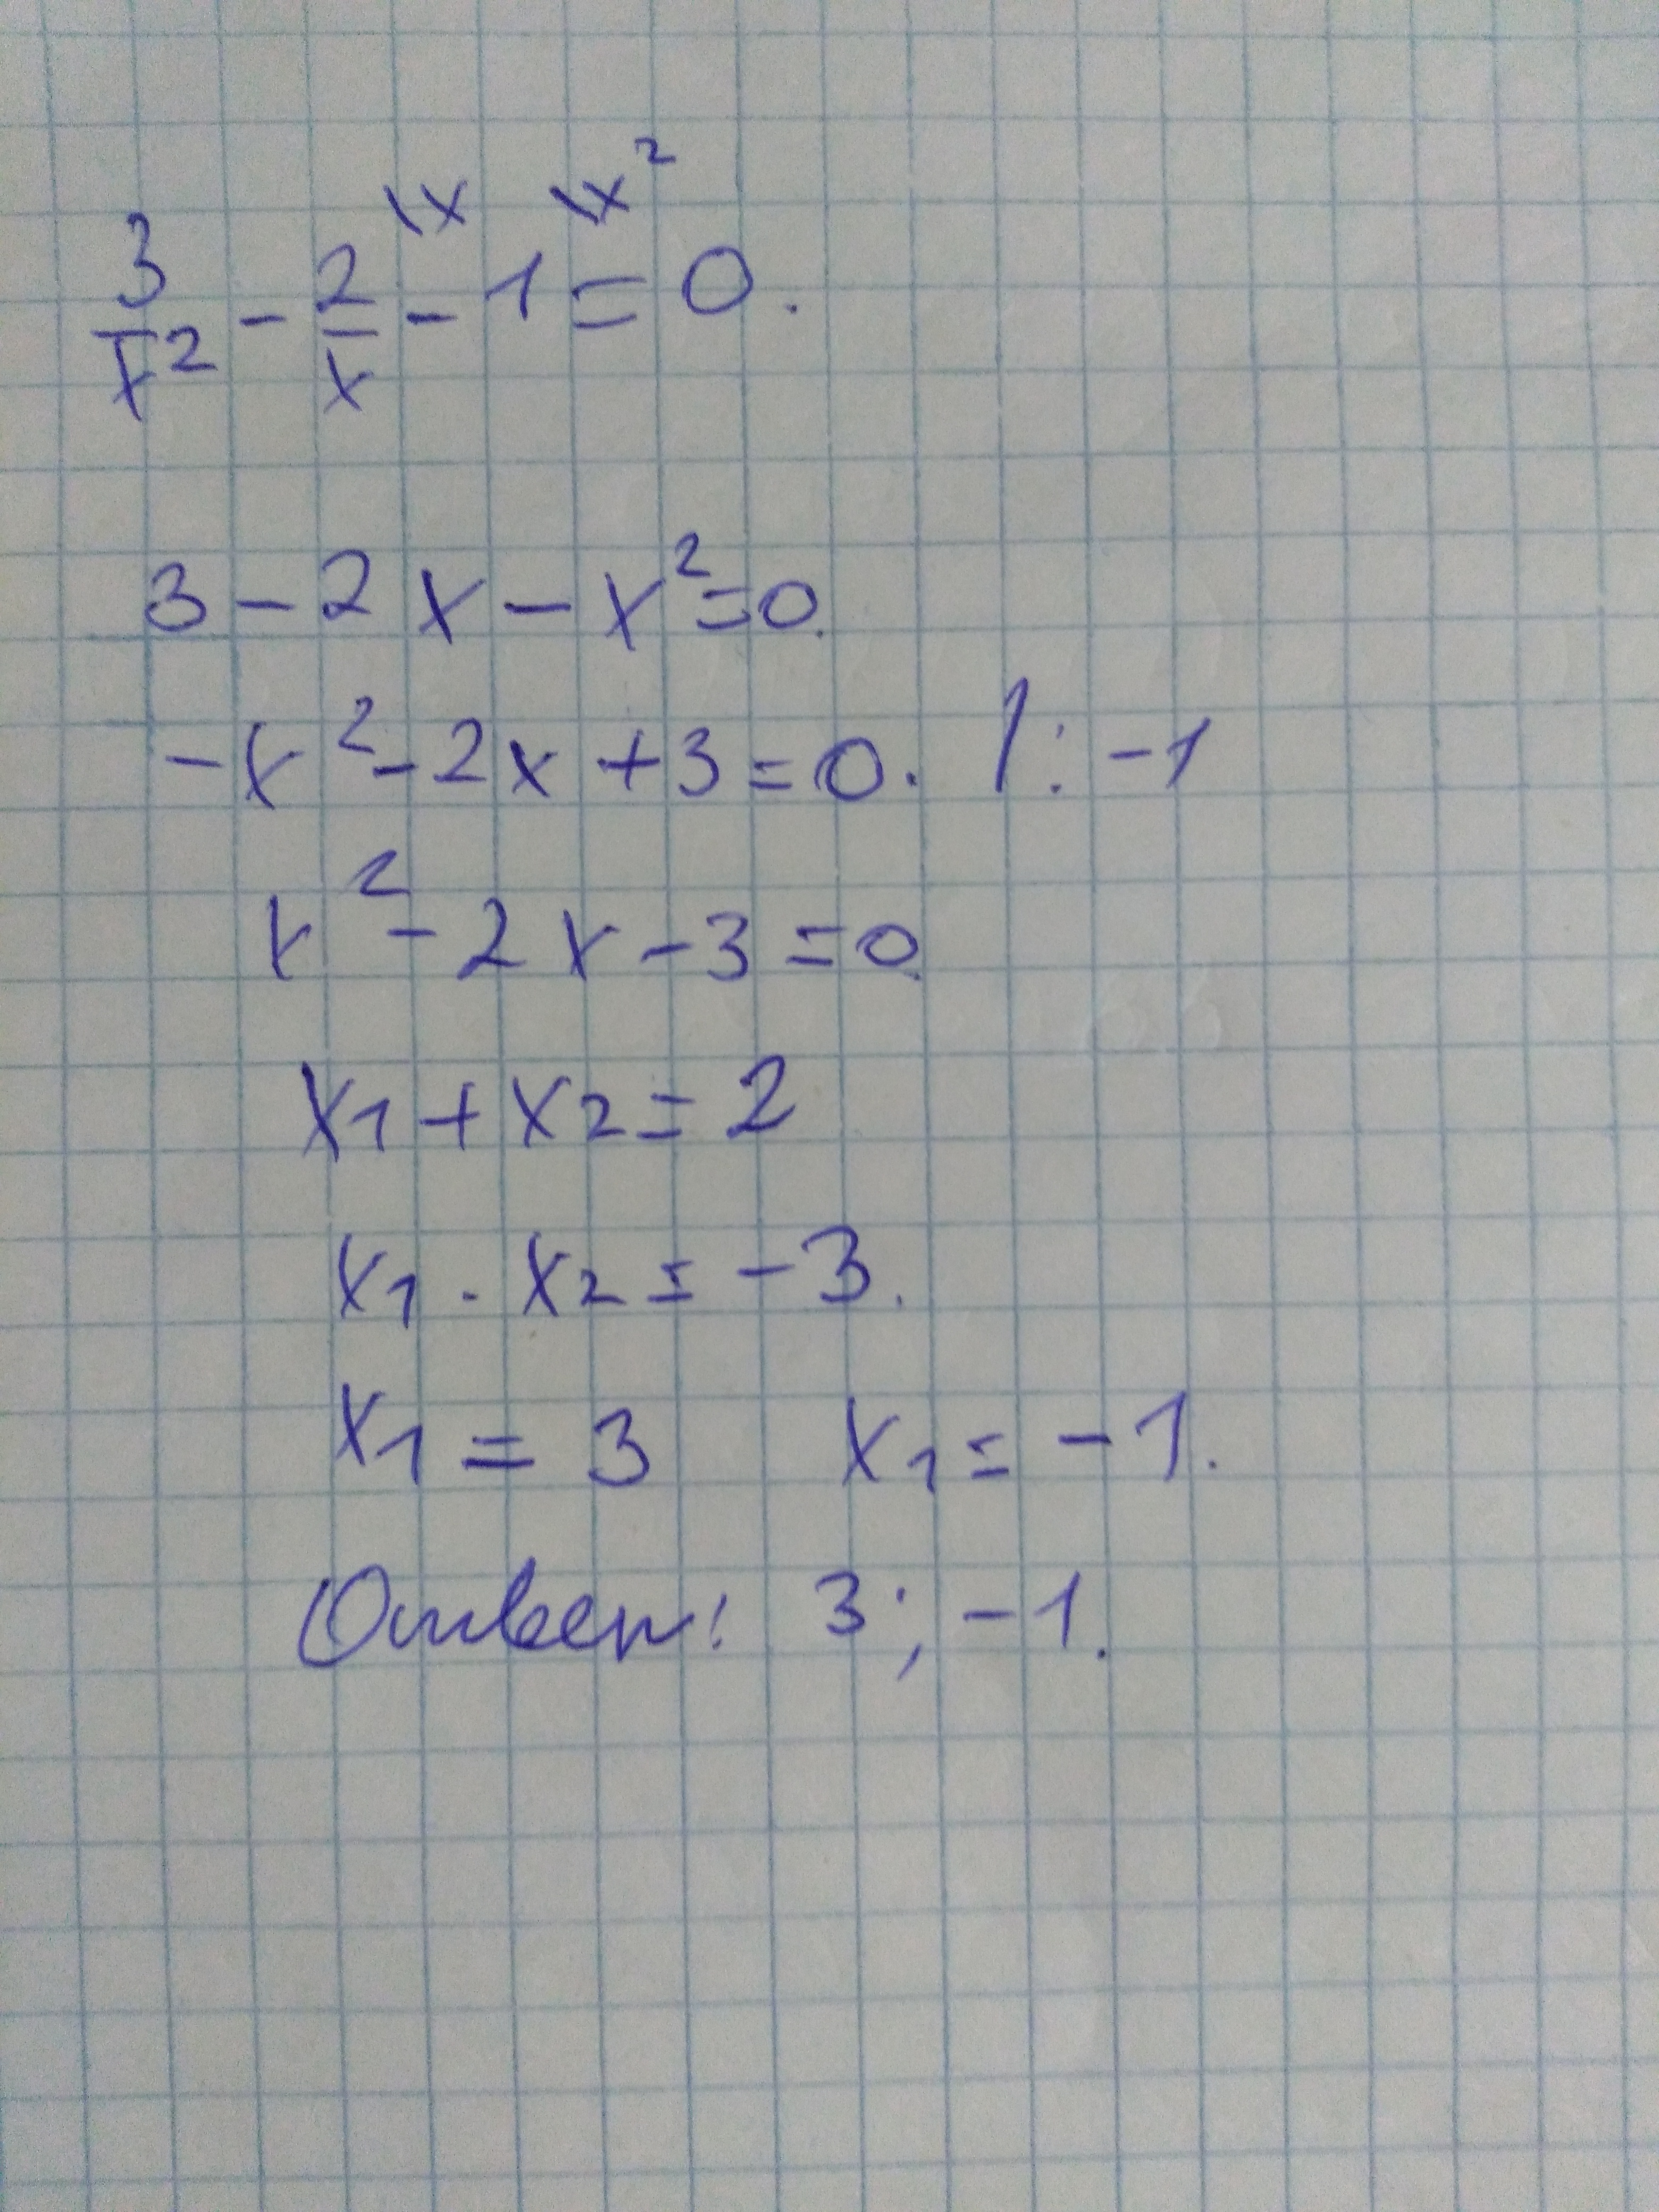 \x \x²
3/x² - 2/x - 1 = 0.
3 - 2x - x² = 0.
-x² - 2x + 3 = 0. | : -1
x² - 2x - 3 = 0.
x1 + x2 = 2
x1 · x2 = -3.
x1 = 3 x1 = -1.
Ответ: 3; -1.